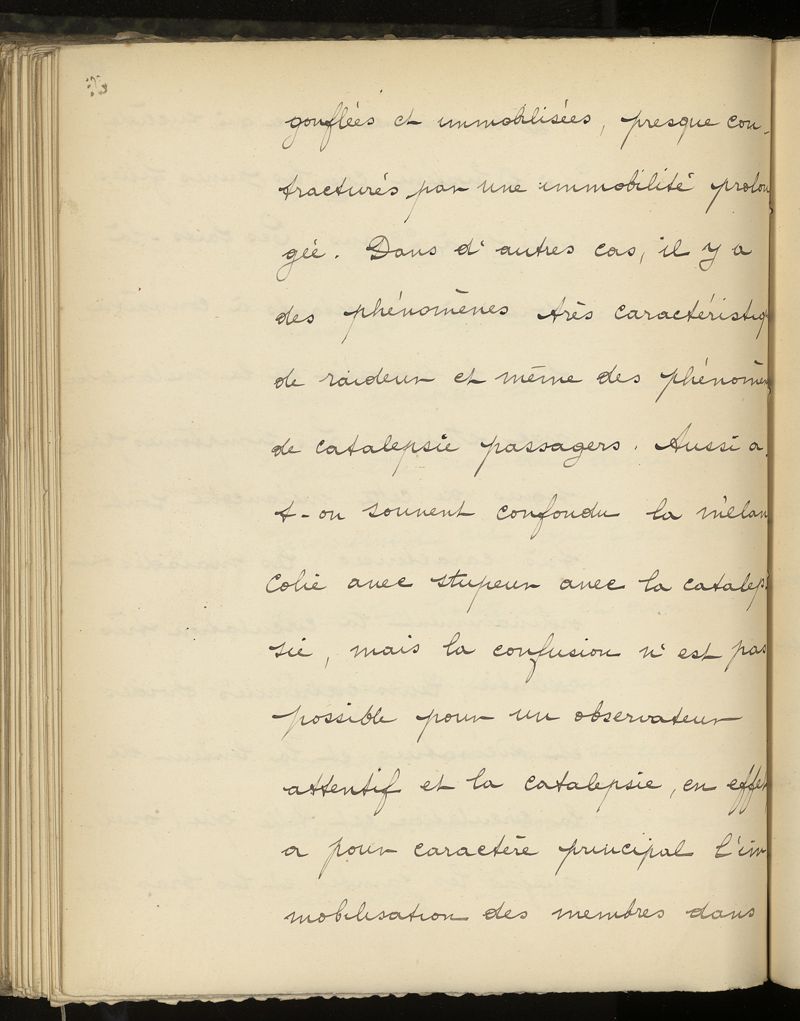 gonflées et immobilisées, presque con-
tracturés par une immobilité prolon
gée. Dans d'autres cas, il y a
des phénomènes très caractéristiq
de raideur et même des phénomèn
de catalepsie passagers. Aussi a
t-on souvent confondu la mélan
colie avec stupeur avec la catalep
sie, mais la confusion n'est pas
possible pour un observateur
attentif et la catalepsie, en effet
a pour caractère principal l'im
mobilisation des membres dans